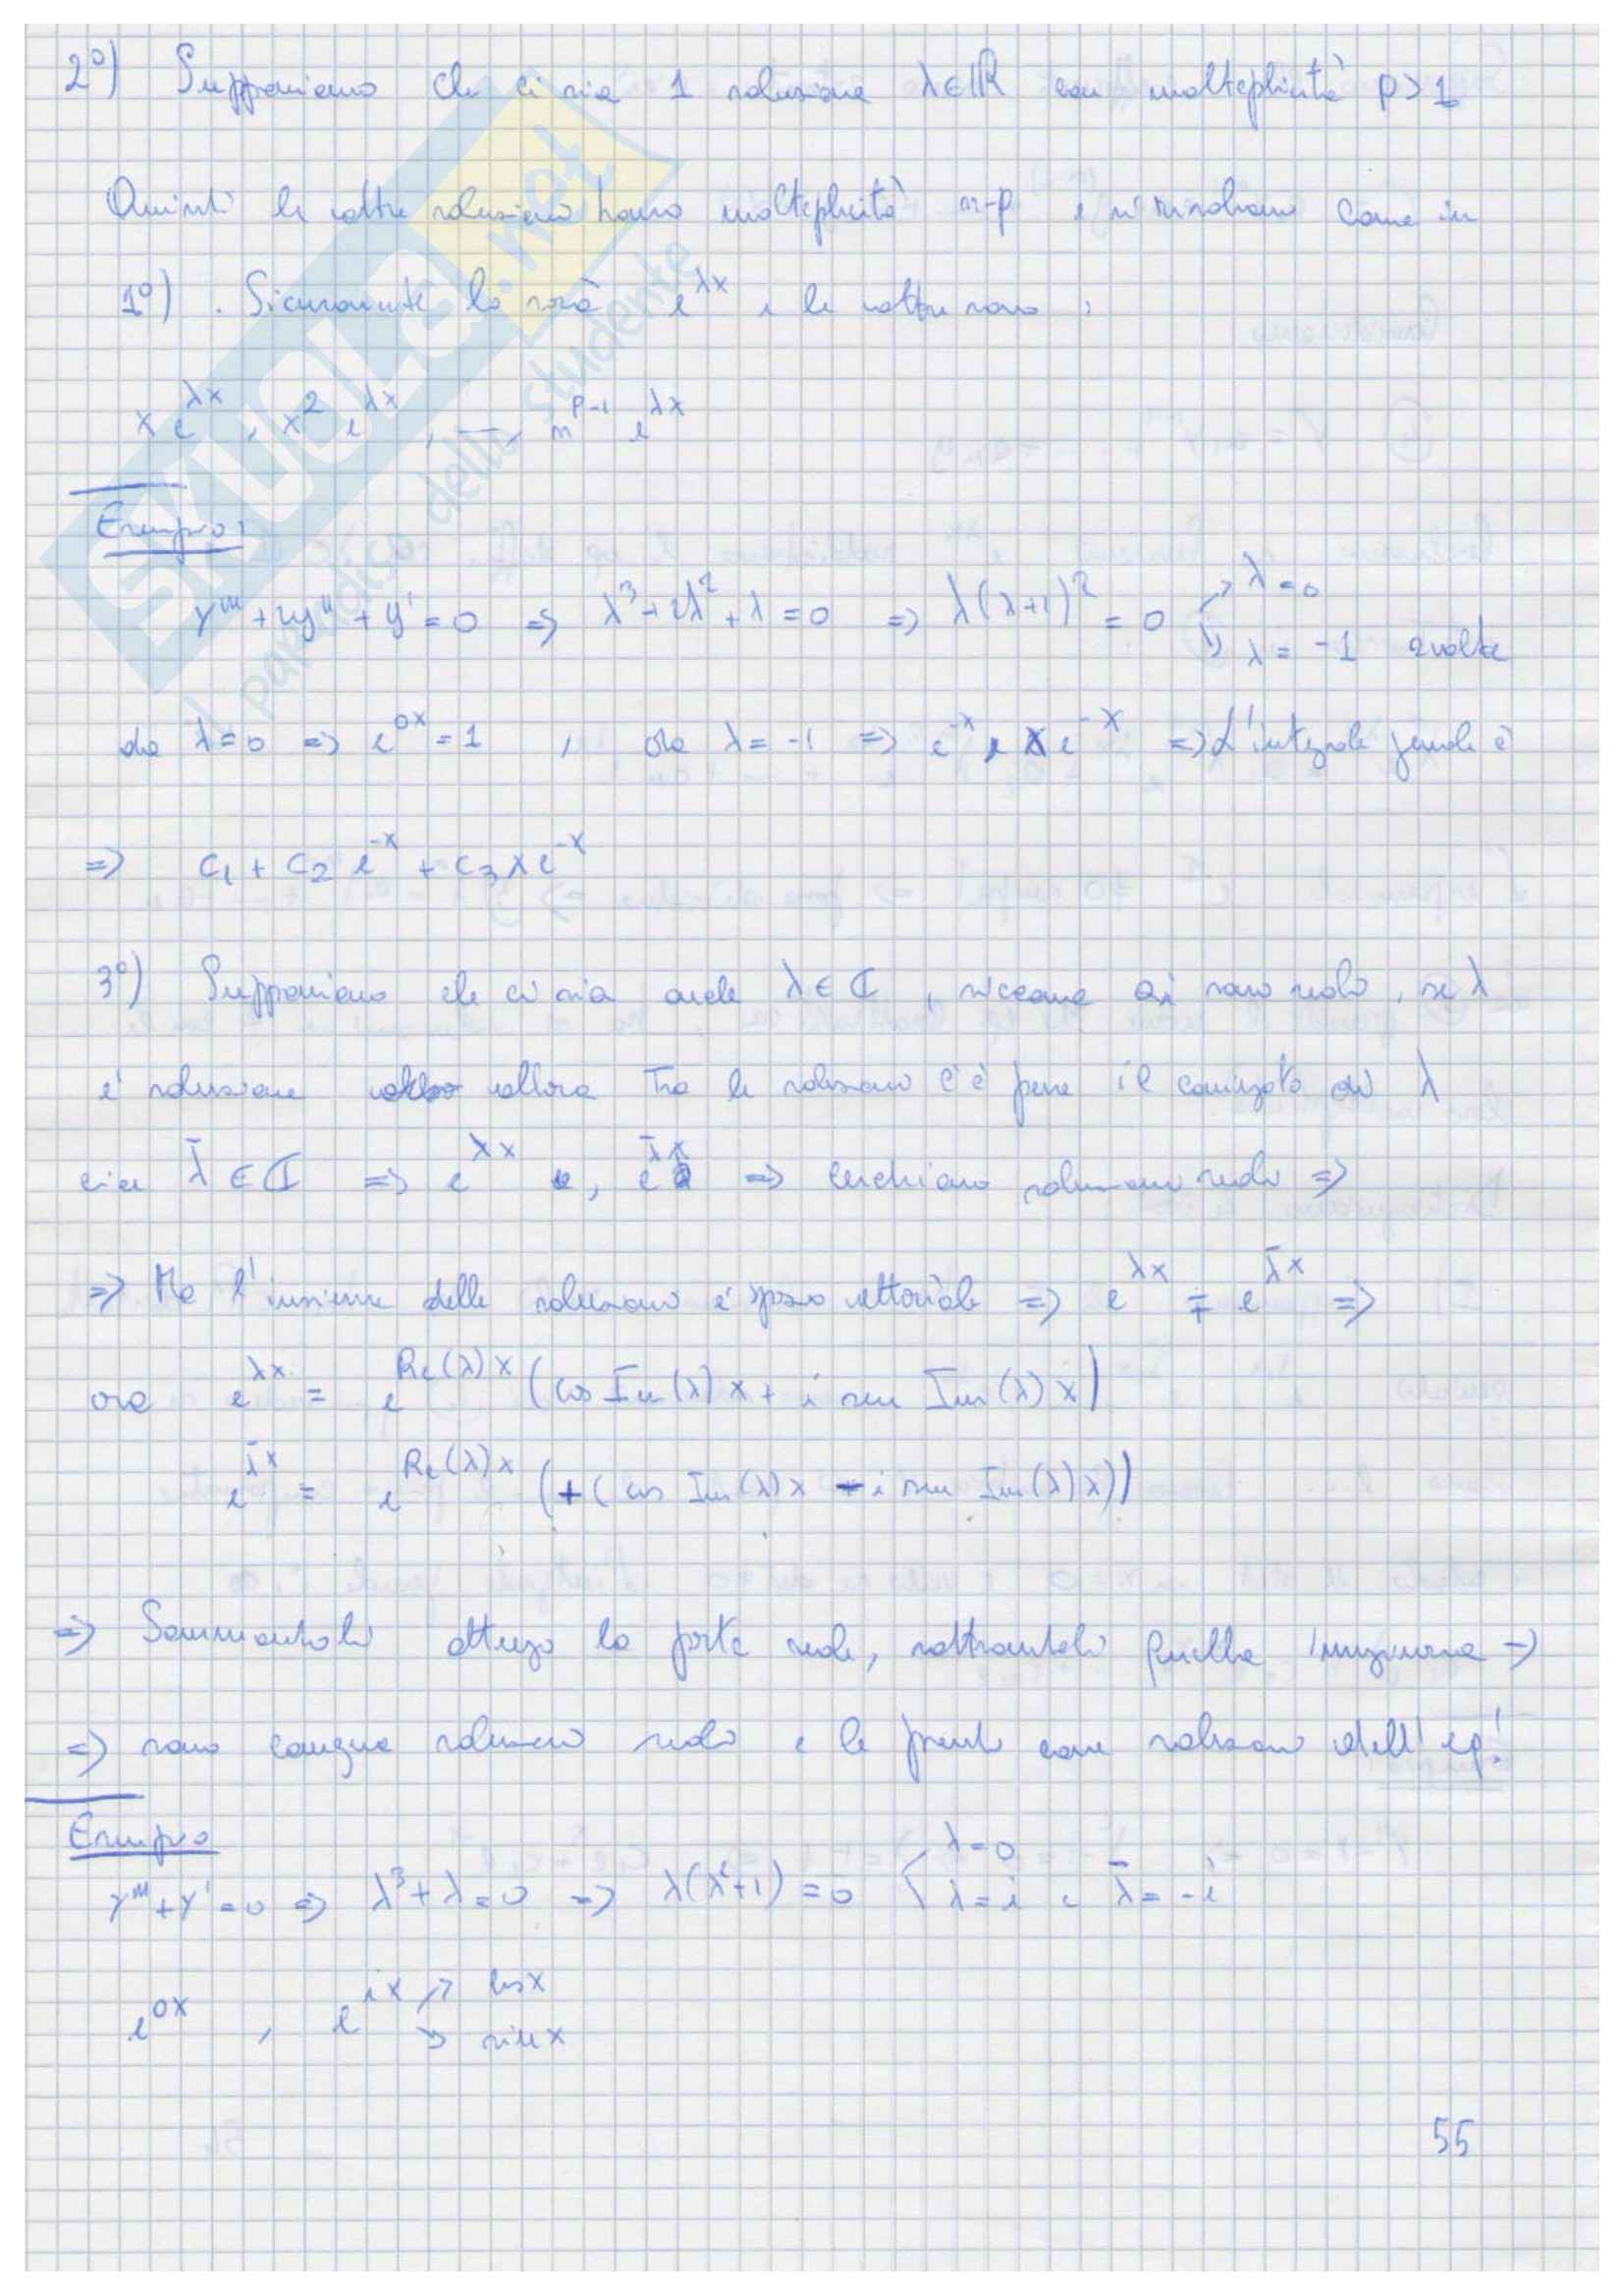 2°) Supponiamo che ci sia 1 soluzione λ∈ℝ con molteplicità p>1
Quindi le altre soluzioni hanno molteplicità n-p e si risolvono come in
1°). Sicuramente lo sarà e^{λx} e le altre sono:
x e^{λx}, x^2 e^{λx}, —, n^{p-1} e^{λx}
Esempio:
y''' + 2y'' + y' = 0 => λ^3 + 2λ^2 + λ = 0 => λ(λ+1)^2 = 0 → λ = 0
↳ λ = -1 2 volte
da λ=0 => e^{0x} = 1 , da λ = -1 => e^{-x} e x e^{-x} => L'integrale generale è
=> c_1 + c_2 e^{-x} + c_3 x e^{-x}
3°) Supponiamo che ci sia anche λ∈ℂ, siccome ai sono reali, se λ
è soluzione allora tra le soluzioni c'è pure il coniugato di λ
cioè λ̄ ∈ ℂ => e^{λx} e, e^{λ̄x} => cerchiamo soluzioni reali =>
=> Ma l'insieme delle soluzioni è spazio vettoriale => e^{λx} ∓ e^{λ̄x} =>
ora e^{λx} = e^{Re(λ)x} (cos Im(λ)x + i sen Im(λ)x)
e^{λ̄x} = e^{Re(λ)x} (+(cos Im(λ)x - i sen Im(λ)x))
=> Sommandoli ottengo la parte reale, sottraendoli quella immaginaria ->
=> sono comunque soluzioni reali e le prendo come soluzioni dell'eq!
Esempio
y''' + y' = 0 => λ^3 + λ = 0 => λ(λ^2+1) = 0 λ = 0
λ = i e λ̄ = -i
e^{0x} , e^{ix} → cos x
↘ sin x
55
SKUOLA.net
il paradiso dello studente